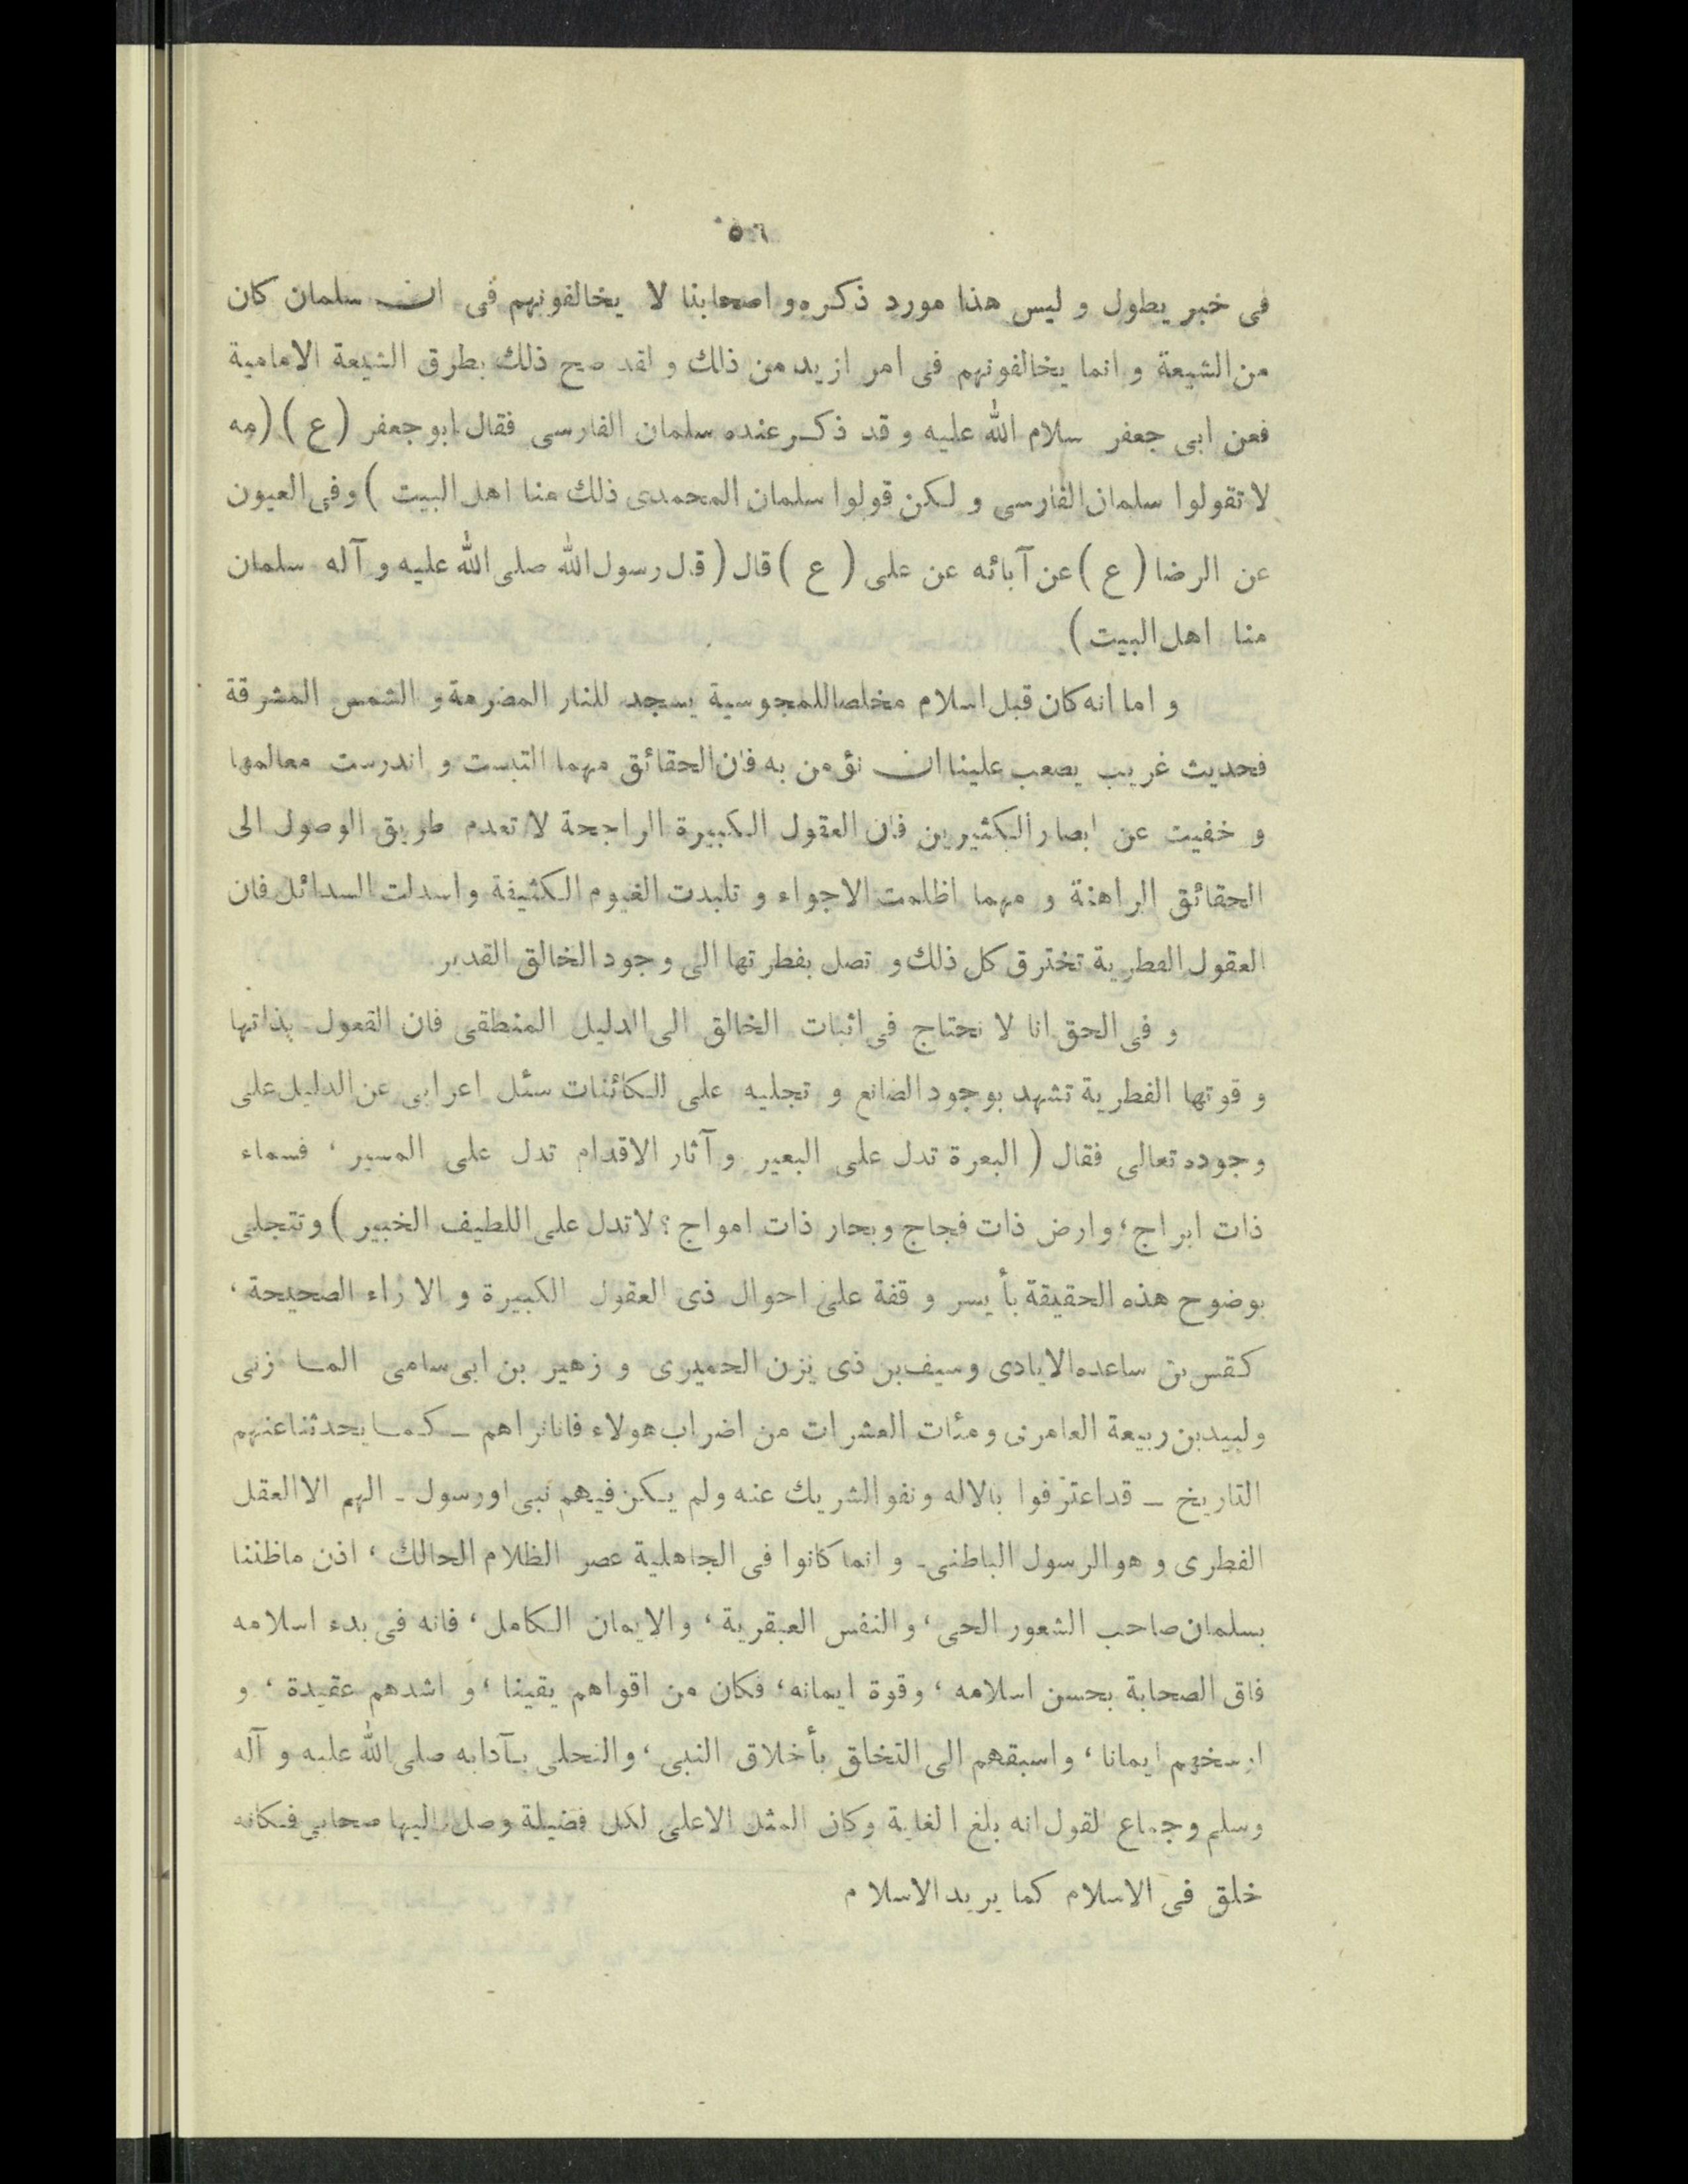 ٥٦
فى خبر يطول و ليس هذا مورد ذكره و اصحابنا لا يخالفونهم فى ان سلمان كان
من الشيعة و انما يخالفونهم فى امر ازيد من ذلك و لقد صح ذلك بطرق الشيعة الامامية
فعن ابى جعفر سلام الله عليه و قد ذكر عنده سلمان الفارسى فقال ابو جعفر (ع) (مه
لا تقولوا سلمان الفارسى و لكن قولوا سلمان المحمدى ذلك منا اهل البيت) وفى العيون
عن الرضا (ع) عن آبائه عن على (ع) قال (قال رسول الله صلى الله عليه و آله سلمان
منا اهل البيت)
و اما انه كان قبل اسلام مخلصا للمجوسية يسجد للنار المضرمة و الشمس المشرقة
فحديث غريب يصعب علينا ان نؤمن به فان الحقائق مهما التبست و اندرست معالمها
و خفيت عن ابصار الكثيرين فان العقول الكبيرة الراجحة لا تعدم طريق الوصول الى
الحقائق الراهنة و مهما اظلمت الاجواء و تلبدت الغيوم الكثيفة واسدلت السدائل فان
العقول الفطرية تخترق كل ذلك و تصل بفطرتها الى وجود الخالق القدير
و فى الحق انا لا نحتاج فى اثبات الخالق الى الدليل المنطقى فان القعول بذاتها
و قوتها الفطرية تشهد بوجود الصانع و تجليه على الكائنات سئل اعرابى عن الدليل على
وجوده تعالى فقال (البعرة تدل على البعير و آثار الاقدام تدل على المسير ، فسماء
ذات ابراج ، وارض ذات فجاج وبحار ذات امواج ؟ لاتدل على اللطيف الخبير) وتتجلى
بوضوح هذه الحقيقة بأيسر وقفة على احوال ذى العقول الكبيرة و الا راء الصحيحة ،
كقس بن ساعده الايادى وسيف بن ذى يزن الحميرى و زهير بن ابى سامى المازنى
ولبيد بن ربيعة العامرى ومئات العشرات من اضراب هولاء فانانراهم ــ كما يحدثنا عنهم
التاريخ ــ قد اعترفوا بالاله ونفوا الشريك عنه ولم يكن فيهم نبى اورسول ـ الهم الا العقل
الفطرى و هو الرسول الباطنى ـ و انما كانوا فى الجاهلية عصر الظلام الحالك ، اذن ماظننا
بسلمان صاحب الشعور الحى ، و النفس العبقرية ، والايمان الكامل ، فانه فى بدء اسلامه
فاق الصحابة بحسن اسلامه ، وقوة ايمانه ، فكان من اقواهم يقينا ، و اشدهم عقيدة ، و
ارسخهم ايمانا ، واسبقهم الى التخلق بأخلاق النبى ، والتحلى بآدابه صلى الله عليه و آله
وسلم وجماع لقول انه بلغ الغاية وكان المثل الاعلى لكل فضيلة وصل اليها صحابى فكانه
خلق فى الاسلام كما يريد الاسلام